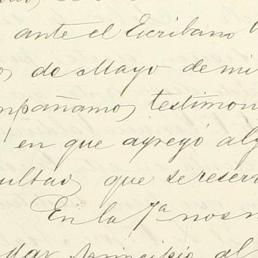 ante el Escribano
de Mayo de mi
mpañamos testimon
en que agregó alg
ultad, que se reser
En la 7ª nos
dar principio al